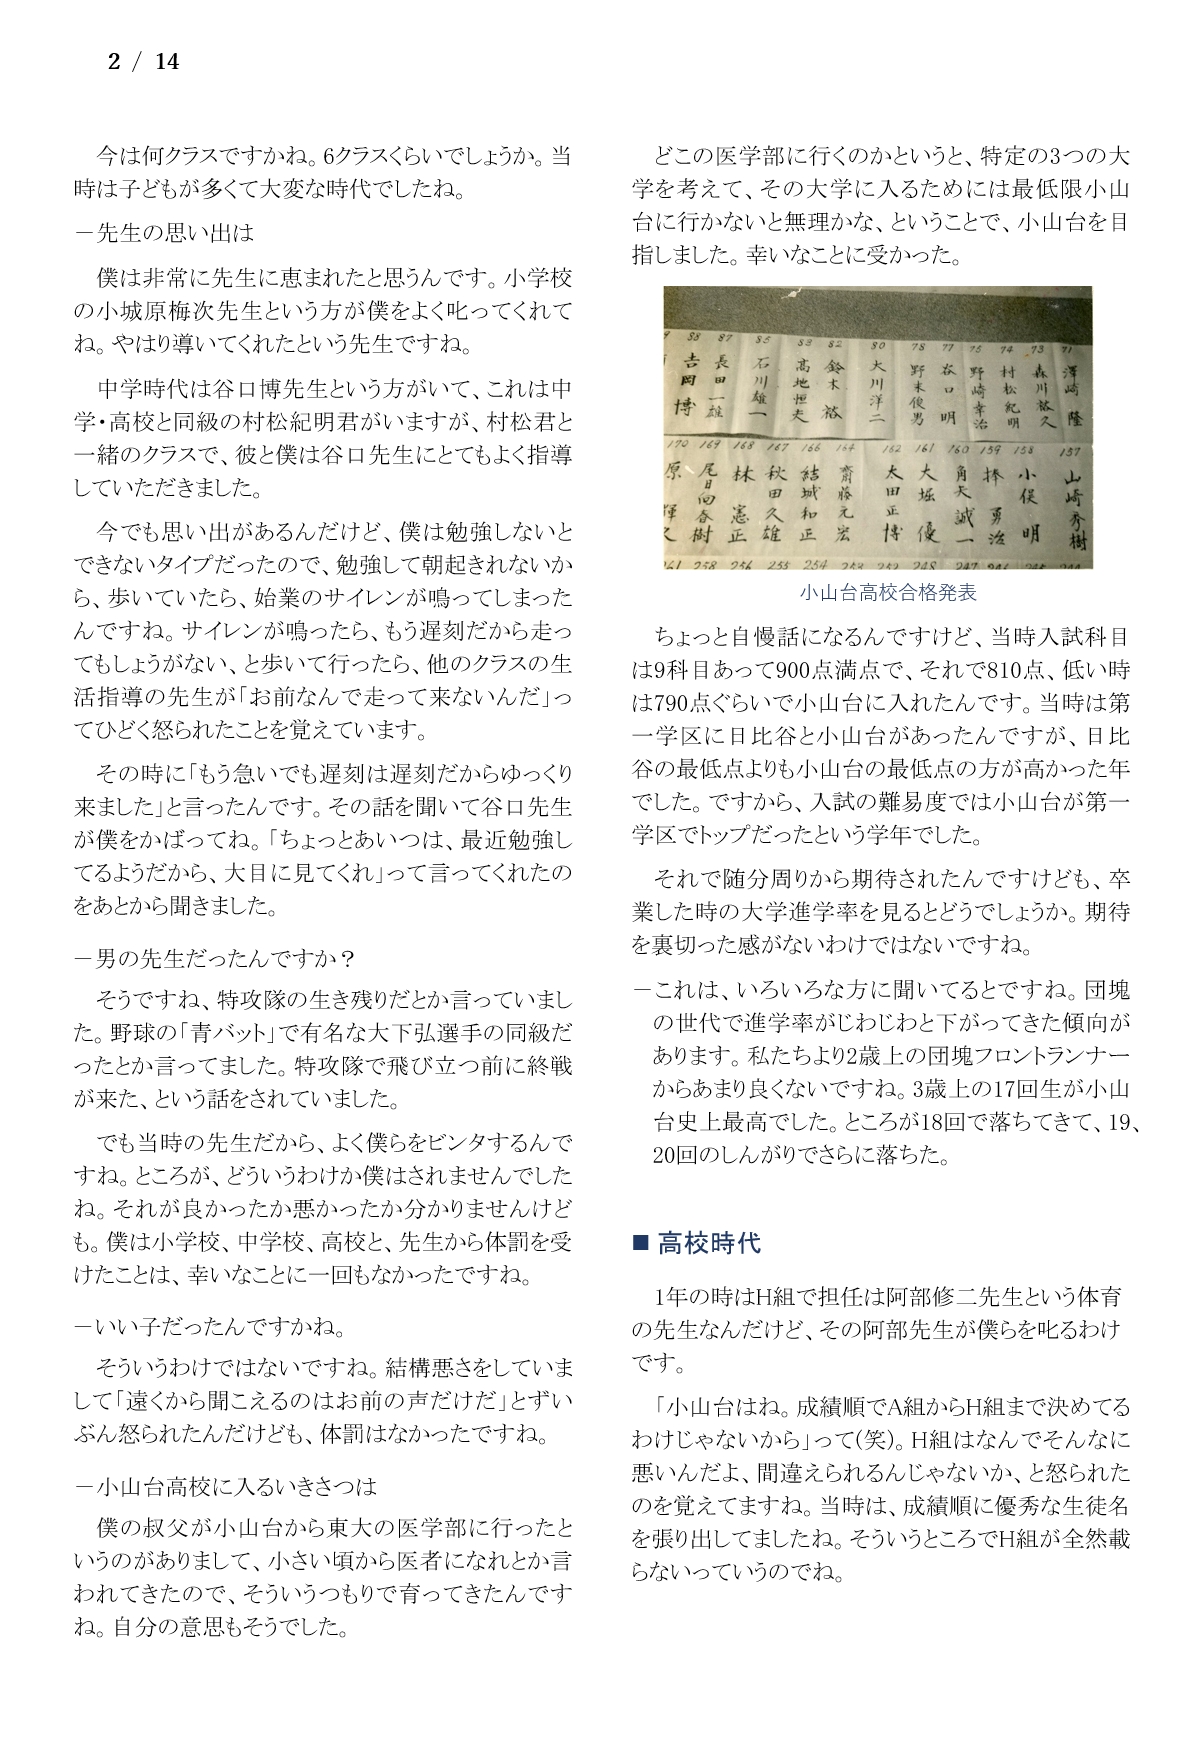 2 / 14
今は何クラスですかね。6クラスくらいでしょうか。当
時は子どもが多くて大変な時代でしたね。
－先生の思い出は
僕は非常に先生に恵まれたと思うんです。小学校
の小城原梅次先生という方が僕をよく叱ってくれて
ね。やはり導いてくれたという先生ですね。
中学時代は谷口博先生という方がいて、これは中
学・高校と同級の村松紀明君がいますが、村松君と
一緒のクラスで、彼と僕は谷口先生にとてもよく指導
していただきました。
今でも思い出があるんだけど、僕は勉強しないと
できないタイプだったので、勉強して朝起きれないか
ら、歩いていたら、始業のサイレンが鳴ってしまった
んですね。サイレンが鳴ったら、もう遅刻だから走っ
てもしょうがない、と歩いて行ったら、他のクラスの生
活指導の先生が「お前なんで走って来ないんだ」っ
てひどく怒られたことを覚えています。
その時に「もう急いでも遅刻は遅刻だからゆっくり
来ました」と言ったんです。その話を聞いて谷口先生
が僕をかばってね。「ちょっとあいつは、最近勉強し
てるようだから、大目に見てくれ」って言ってくれたの
をあとから聞きました。
－男の先生だったんですか？
そうですね、特攻隊の生き残りだとか言っていまし
た。野球の「青バット」で有名な大下弘選手の同級だ
ったとか言ってました。特攻隊で飛び立つ前に終戦
が来た、という話をされていました。
でも当時の先生だから、よく僕らをビンタするんで
すね。ところが、どういうわけか僕はされませんでした
ね。それが良かったか悪かったか分かりませんけど
も。僕は小学校、中学校、高校と、先生から体罰を受
けたことは、幸いなことに一回もなかったですね。
－いい子だったんですかね。
そういうわけではないですね。結構悪さをしていま
して「遠くから聞こえるのはお前の声だけだ」とずい
ぶん怒られたんだけども、体罰はなかったですね。
－小山台高校に入るいきさつは
僕の叔父が小山台から東大の医学部に行ったと
いうのがありまして、小さい頃から医者になれとか言
われてきたので、そういうつもりで育ってきたんです
ね。自分の意思もそうでした。
どこの医学部に行くのかというと、特定の3つの大
学を考えて、その大学に入るためには最低限小山
台に行かないと無理かな、ということで、小山台を目
指しました。幸いなことに受かった。
88 87 85 83 82 80 78 77 75 74 73 71
吉岡博
長田一雄
石川雄一
高地恒夫
鈴木裕
大川洋二
野末俊男
谷口明
野崎幸治
村松紀明
森川裕久
澤崎隆
170 169 168 167 166 164 162 161 160 159 158 157
尾日向春樹
林憲正
秋田久雄
結城和正
齋藤元宏
太田正博
大堀優
角矢誠一
棒勇治
小俣明
山崎秀樹
258 256 255 254 253 252 248 247
小山台高校合格発表
ちょっと自慢話になるんですけど、当時入試科目
は9科目あって900点満点で、それで810点、低い時
は790点ぐらいで小山台に入れたんです。当時は第
一学区に日比谷と小山台があったんですが、日比
谷の最低点よりも小山台の最低点の方が高かった年
でした。ですから、入試の難易度では小山台が第一
学区でトップだったという学年でした。
それで随分周りから期待されたんですけども、卒
業した時の大学進学率を見るとどうでしょうか。期待
を裏切った感がないわけではないですね。
－これは、いろいろな方に聞いてるとですね。団塊
の世代で進学率がじわじわと下がってきた傾向が
あります。私たちより2歳上の団塊フロントランナー
からあまり良くないですね。3歳上の17回生が小山
台史上最高でした。ところが18回で落ちてきて、19、
20回のしんがりでさらに落ちた。
■ 高校時代
1年の時はH組で担任は阿部修二先生という体育
の先生なんだけど、その阿部先生が僕らを叱るわけ
です。
「小山台はね。成績順でA組からH組まで決めてる
わけじゃないから」って(笑)。H組はなんでそんなに
悪いんだよ、間違えられるんじゃないか、と怒られた
のを覚えてますね。当時は、成績順に優秀な生徒名
を張り出してましたね。そういうところでH組が全然載
らないっていうのでね。